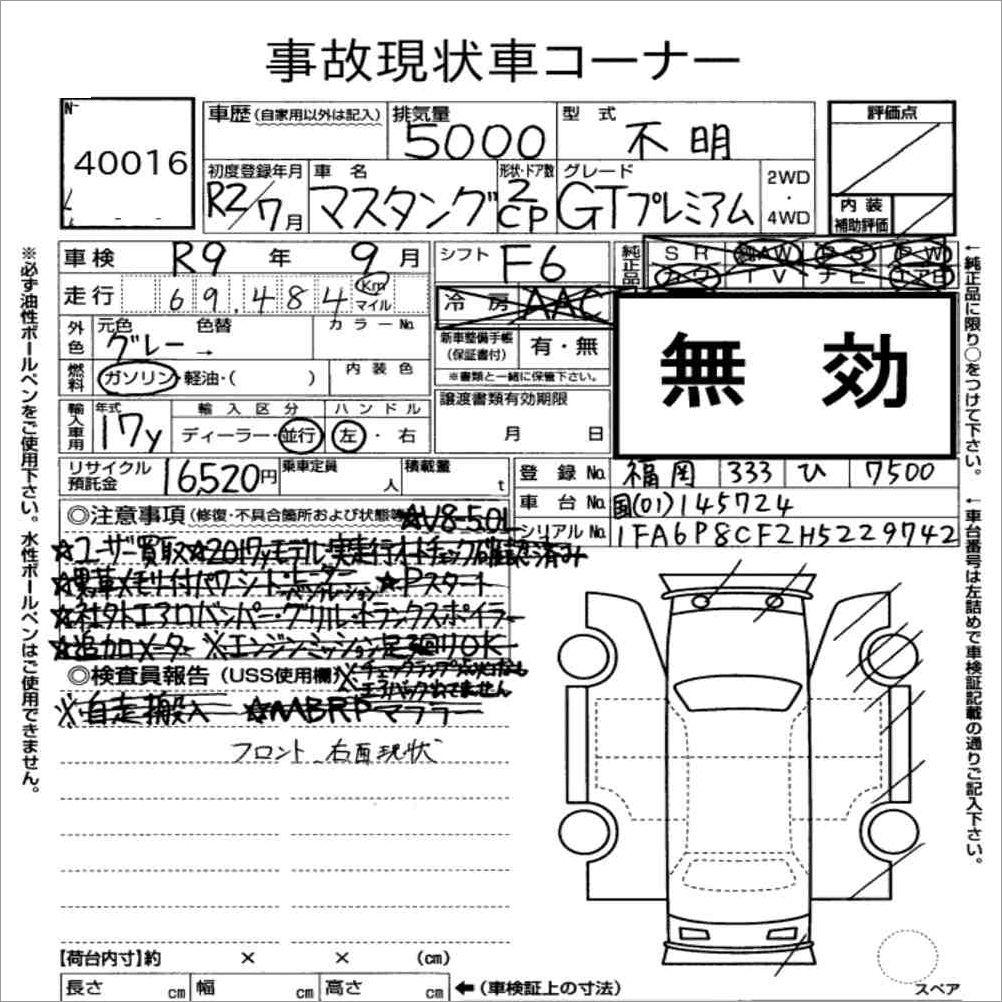 事故現状車コーナー
№
40016
車歴(自家用以外は記入)
排気量
5000
型 式
不明
評価点
初度登録年月
R2/7月
車 名
マスタング
形状・ドア数
2
CP
グレード
GTプレミアム
2WD
・
4WD
内 装
補助評価
車検 R9 年 9 月
シフト F6
純正品
SR AW PS PW
カワ TV ナビ エアB
走行 69.484 Km
マイル
冷 房 AAC
外色
元色
グレー →
色替
カラー№
新車整備手帳
(保証書付)
有・無
※書類と一緒に保管下さい。
無 効
燃料
ガソリン・軽油・( )
内 装 色
輸入車用
年式
17y
輸 入 区 分
ディーラー・並行
ハ ン ド ル
左・右
譲渡書類有効期限
月 日
リサイクル
預託金
16,520円
乗車定員
人
積載量
t
登 録 №
福岡 333 ひ 7500
車 台 №
国(01)145724
シリアル№
1FA6P8CF2H5229742
◎注意事項(修復・不具合箇所および状態等
☆V8-5.0L
☆ユーザー買取☆2017yモデル・実走行オートチェック確認済み
☆黒革メモリ付パワーシート・ヒーター
ベンチレーション
☆Pスタート
☆社外エアロバンパー・グリル・トランクスポイラー
☆追加メーター ※エンジンミッション足3回りOK
◎検査員報告(USS使用欄)
※チェックランプ点灯なし
エアバックでてません
※自走搬入 ☆MBRPマフラー
フロント、右面現状
【荷台内寸】約 × × (cm)
長さ cm
幅 cm
高さ cm
←(車検証上の寸法)
スペア
※必ず油性ボールペンをご使用下さい。水性ボールペンはご使用できません。
←純正品に限り○をつけて下さい。
←車台番号は左詰めで車検証記載の通りご記入下さい。